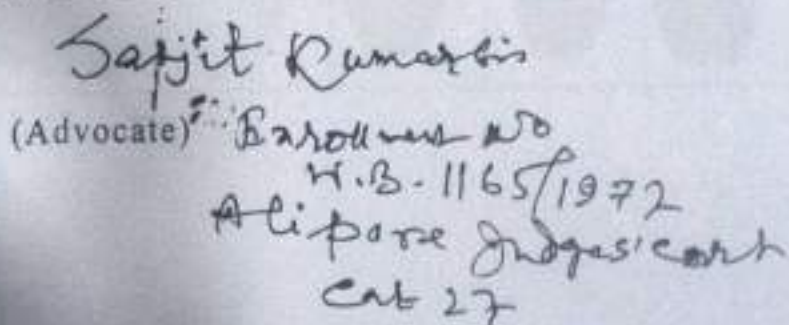 Sarjit Kumar Das
(Advocate) Enrollment No
W.B. - 1165/1972
Alipore Judges' Court
Cal 27